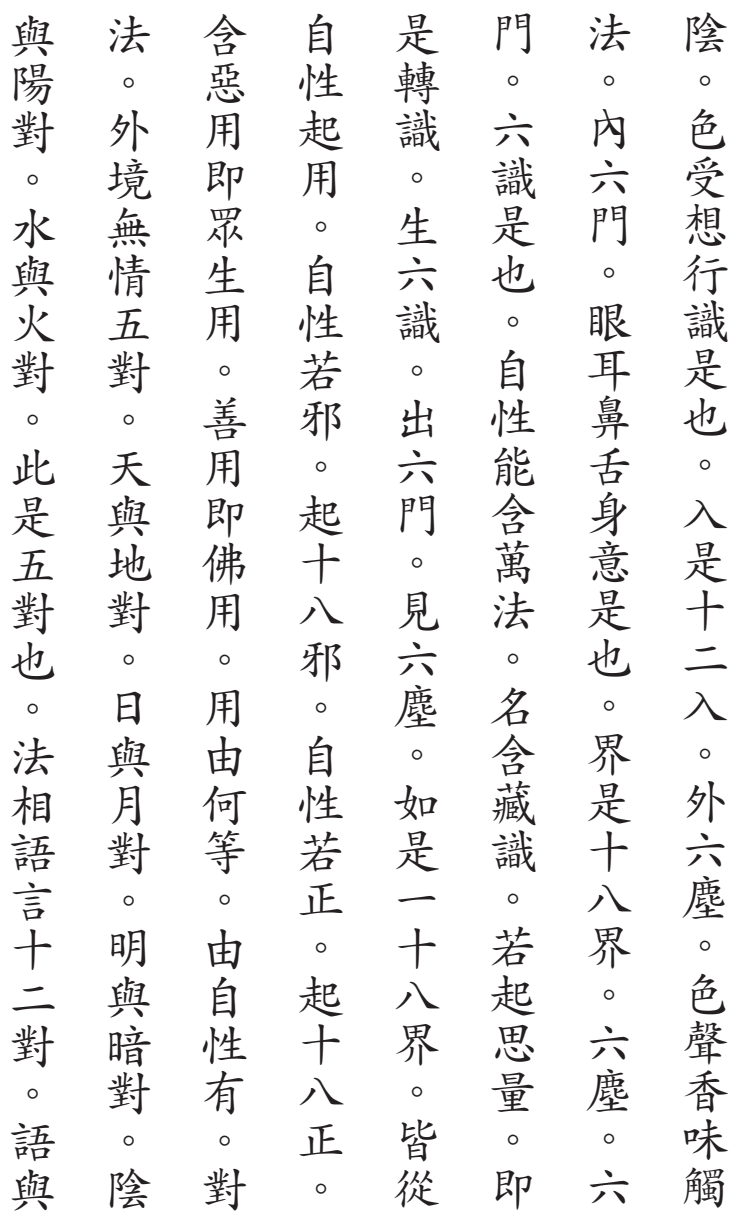 陰。色受想行識是也。入是十二入。外六塵。色聲香味觸
法。內六門。眼耳鼻舌身意是也。界是十八界。六塵。六
門。六識是也。自性能含萬法。名含藏識。若起思量。即
是轉識。生六識。出六門。見六塵。如是一十八界。皆從
自性起用。自性若邪。起十八邪。自性若正。起十八正。
含惡用即眾生用。善用即佛用。用由何等。由自性有。對
法。外境無情五對。天與地對。日與月對。明與暗對。陰
與陽對。水與火對。此是五對也。法相語言十二對。語與